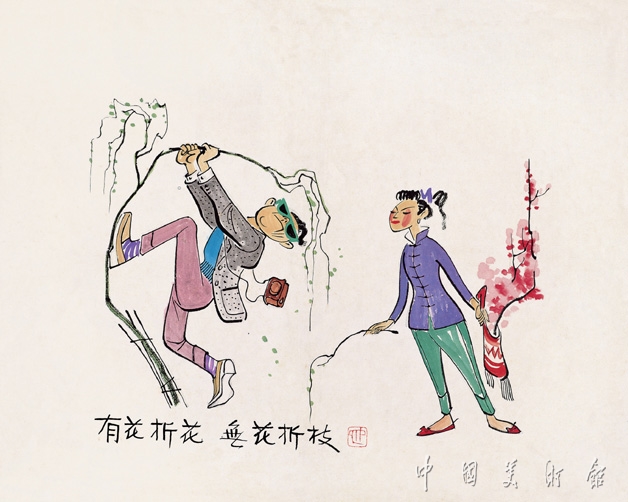 有花折花 無花折枝
中国美术馆